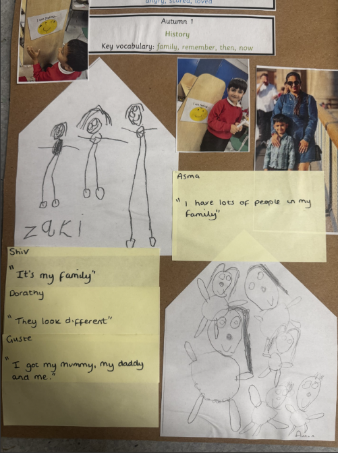 angry, scared, loved
Autumn 1
History
Key vocabulary: family, remember, then, now
zaki
Asma
"I have lots of people in my
family"
Shiv
"It's my family"
Dorothy
"They look different"
Guste
"I got my mummy, my daddy
and me."